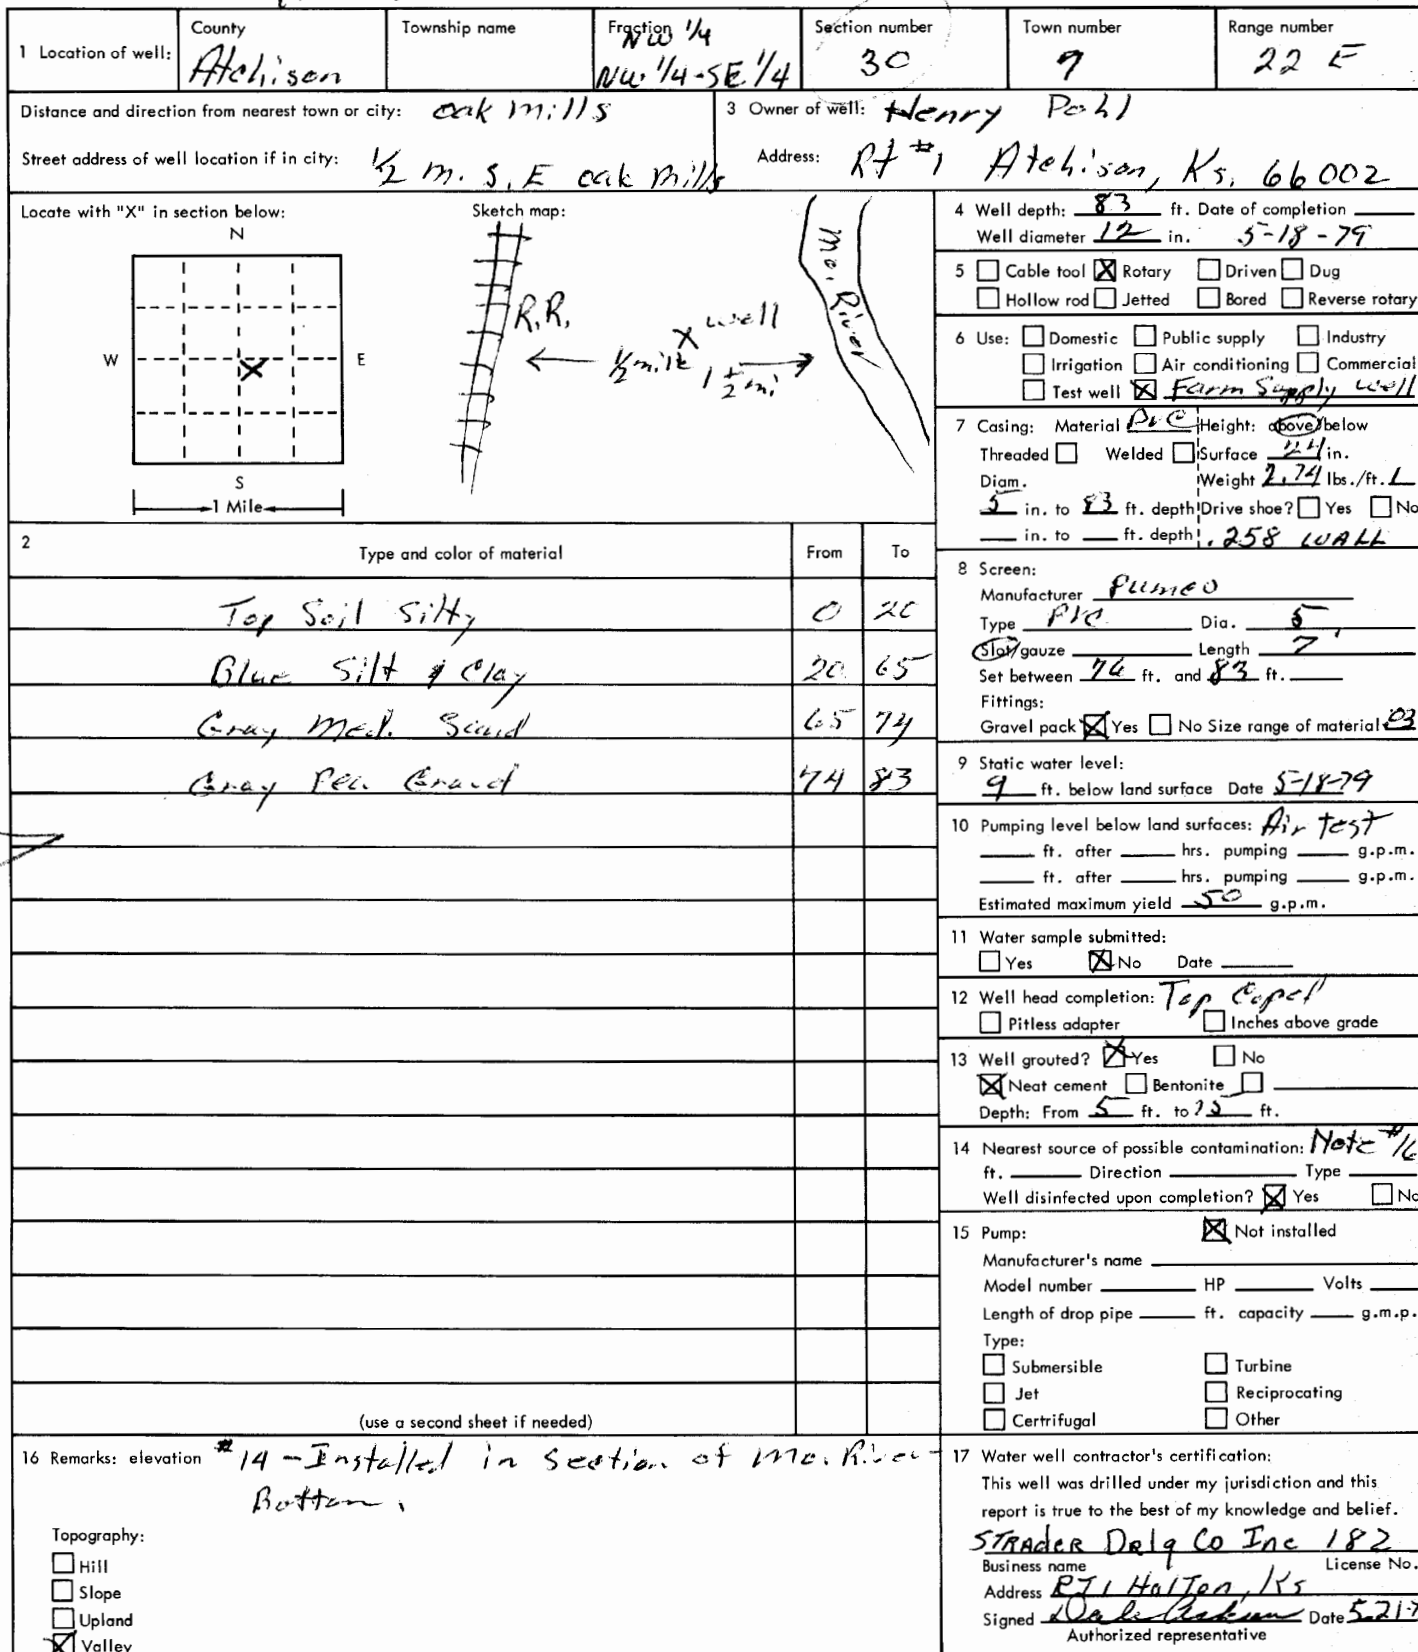 County
Township name
Fraction
Section number
Town number
Range number
1 Location of well:
Atchison
NW 1/4
NW 1/4-SE 1/4
30
7
22 E
Distance and direction from nearest town or city: oak mills
3 Owner of well: Henry Pohl
Street address of well location if in city: 1/2 m. S, E oak mills
Address: Rt #1 Atchison, Ks. 66002
Locate with "X" in section below:
N
W
E
S
1 Mile
Sketch map:
R.R.
Mo. River
X well
1/2 mile
1 1/2 mi
4 Well depth: 83 ft. Date of completion
Well diameter 12 in. 5-18-79
5 Cable tool X Rotary Driven Dug
Hollow rod Jetted Bored Reverse rotary
6 Use: Domestic Public supply Industry
Irrigation Air conditioning Commercial
Test well X Farm Supply well
7 Casing: Material PVC Height: above/below
Threaded Welded Surface 24 in.
Diam. Weight 2.74 lbs./ft.
5 in. to 83 ft. depth Drive shoe? Yes No
in. to ft. depth .258 WALL
2
Type and color of material From To
Top Soil Silty 0 20
Blue Silt & Clay 20 65
Gray Med. Sand 65 74
Gray Pea Gravel 74 83
(use a second sheet if needed)
8 Screen:
Manufacturer
Type PVC Dia. 5
Slot/gauze Length 7'
Set between 76 ft. and 83 ft.
Fittings:
Gravel pack X Yes No Size range of material .03
9 Static water level:
9 ft. below land surface Date 5-18-79
10 Pumping level below land surfaces: Air test
ft. after hrs. pumping g.p.m.
ft. after hrs. pumping g.p.m.
Estimated maximum yield 50 g.p.m.
11 Water sample submitted:
Yes X No Date
12 Well head completion: Top Caped
Pitless adapter Inches above grade
13 Well grouted? X Yes No
X Neat cement Bentonite
Depth: From 5 ft. to 15 ft.
14 Nearest source of possible contamination: Note #16
ft. Direction Type
Well disinfected upon completion? X Yes No
15 Pump: X Not installed
Manufacturer's name
Model number HP Volts
Length of drop pipe ft. capacity g.m.p.
Type:
Submersible Turbine
Jet Reciprocating
Certrifugal Other
16 Remarks: elevation #14 - Installed in Section of Mo. River
Bottom.
Topography:
Hill
Slope
Upland
X Valley
17 Water well contractor's certification:
This well was drilled under my jurisdiction and this
report is true to the best of my knowledge and belief.
STRADER Drlg Co Inc 182
Business name License No.
Address RT1 HolTon, Ks
Signed Date 5-21-7
Authorized representative